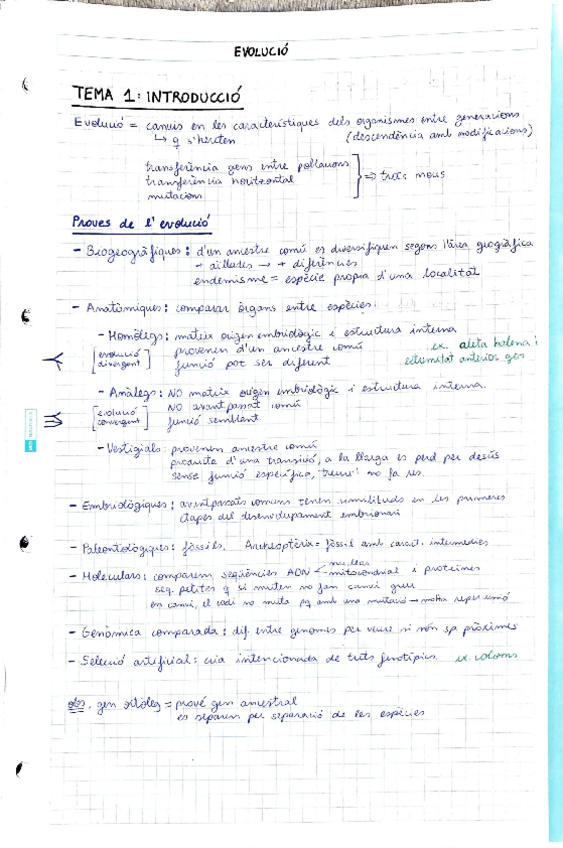 EVOLUCIÓ
TEMA 1: INTRODUCCIÓ
Evolució = canvis en les característiques dels organismes entre generacions
↳ q s'hereten (descendència amb modificacions)
transferència gens entre poblacions
transferència horitzontal ⇒ trets nous
mutacions
Proves de l'evolució
- Biogeogràfiques: d'un ancestre comú es diversifiquen segons l'àrea geogràfica
- aïllades → + diferències
endemisme = espècie pròpia d'una localitat
- Anatòmiques: comparar òrgans entre espècies
- Homòlegs: mateix origen embriològic i estructura interna
[evolució divergent] provenen d'un ancestre comú ex. aleta balena i
funció pot ser diferent extremitat anterior gos
- Anàlegs: NO mateix origen embriològic i estructura interna.
[evolució convergent] NO avantpassat comú
funció semblant
- Vestigials: provenen ancestre comú
producte d'una transició, a la llarga es perd per desús
sense funció específica, "treure" no fa res.
- Embriològiques: avantpassats comuns tenen similituds en les primeres
etapes del desenvolupament embrionari
- Paleontològiques: fòssils. Archeopteria = fòssil amb caract. intermèdies
- Moleculars: comparem seqüències ADN < nuclear
mitocondrial i proteïnes
seq. petites q si muten no fan canvi greu
en canvi, el codi no muta pq amb una mutació → molta repercussió
- Genòmica comparada: dif. entre genomes per veure si són sp pròximes
- Selecció artificial: cria intencionada de trets fenotípics. ex. coloms
obs. gen ortòleg = prové gen ancestral
es separen per separació de les espècies